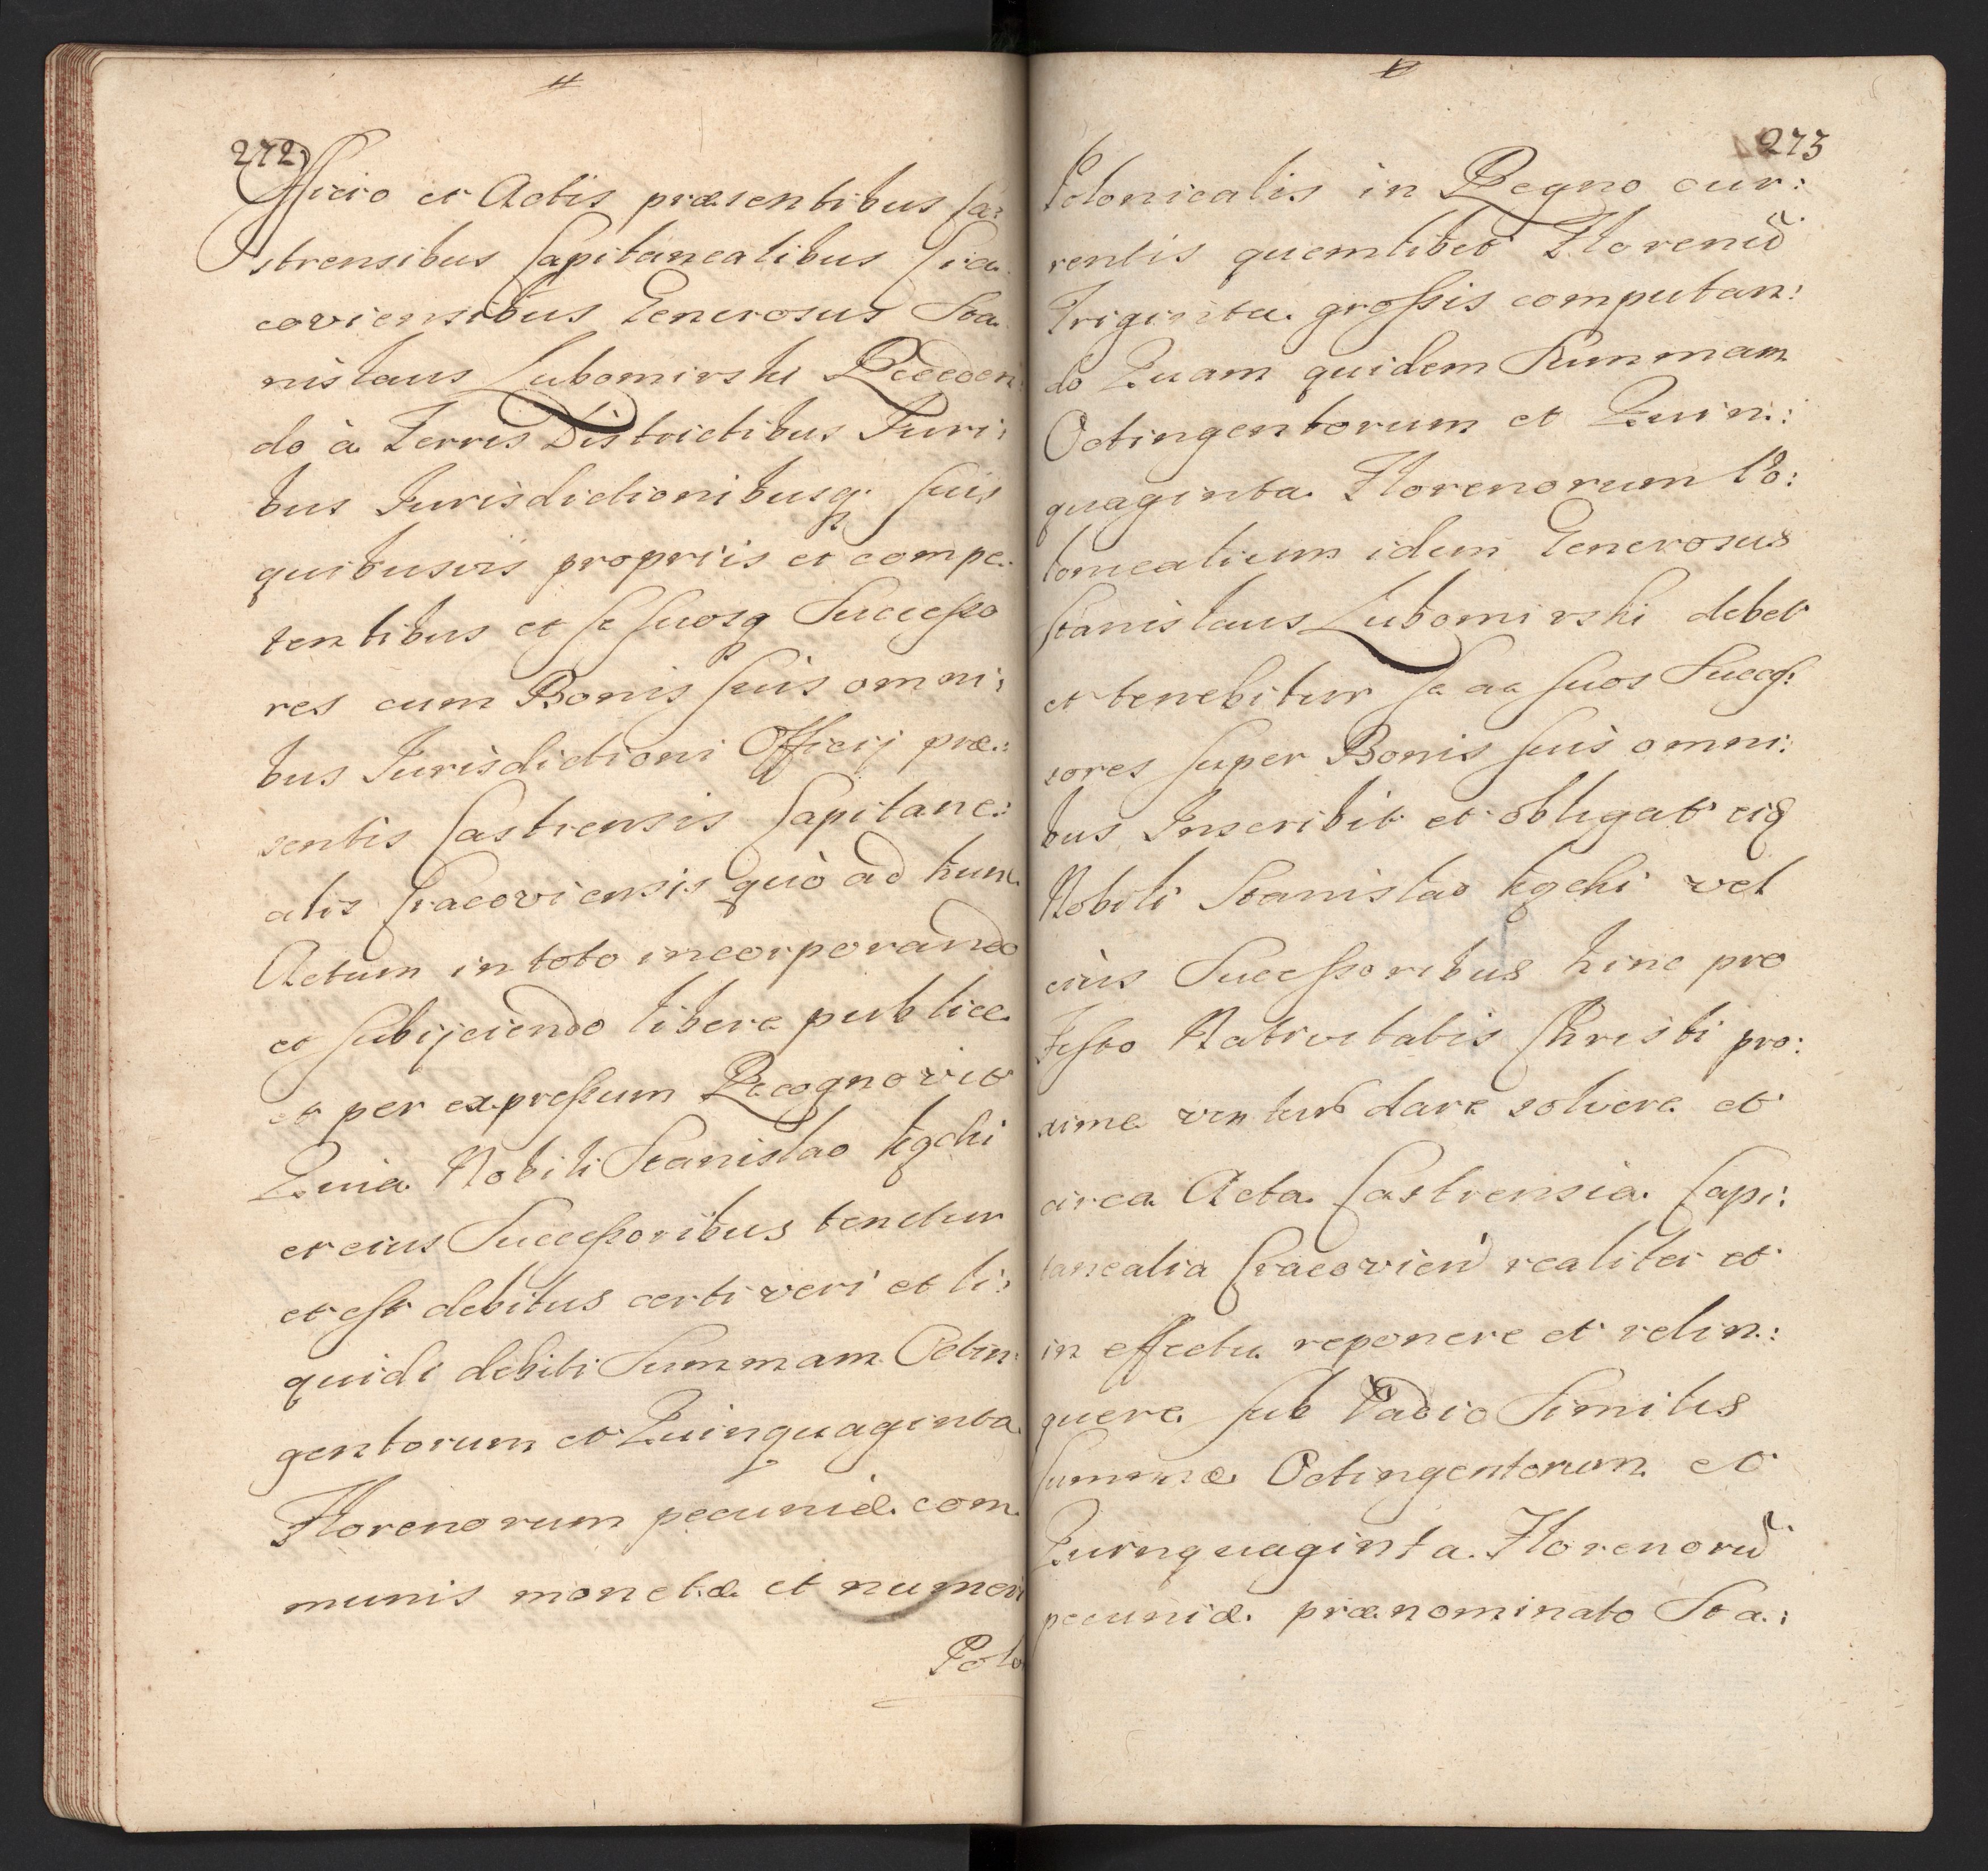 272
Officio et Actis præsentibus Ca:
strensibus Capitanealibus Cra
coviensibus Generosus Sta
nislaus Lubomirski Receden
do à Terris Districtibus Juri:
bus Jurisdictionibusq. suis
quibusvis propriis et compe:
tentibus et se suosq Successo
res cum Bonis suis omni:
bus Jurisdictioni Officij præ:
sentis Castrensis Capitane:
alis Cracoviensis quò ad hunc
Actum in toto incorporando
et subijciendo libere publice
et per expressum Recognovit
Quia Nobili Stanislao
et eius Successoribus tenetur
et est debitus certi veri et li:
quidi debiti Summam Octin:
gentorum et Quinquaginta
Florenorum pecuniæ com
munis monetæ et numeri
Polo
273
Polonicalis in Regno cur:
rentis quemlibet Florenū
Triginta grossis computan:
do Quam quidem Summam
Octingentorum et Quin:
quaginta Florenorum Po:
lonicalium idem Generosus
Stanislaus Lubomirski debet
et tenebitur se ac suos Succes:
sores super Bonis suis omni:
bus Inscribit et obligat
Nobili Stanislao vel
eius Successoribus hinc pro
Festo Nativitatis Christi pro:
xime dare solvere et
circa Acta Castrensia Capi:
tanealia Cracovien realiter et
in effectu reponere et relin:
quere sub Vadio Similis
summæ Octingentorum et
Quinquaginta Florenorū
pecuniæ prænominato Sta: